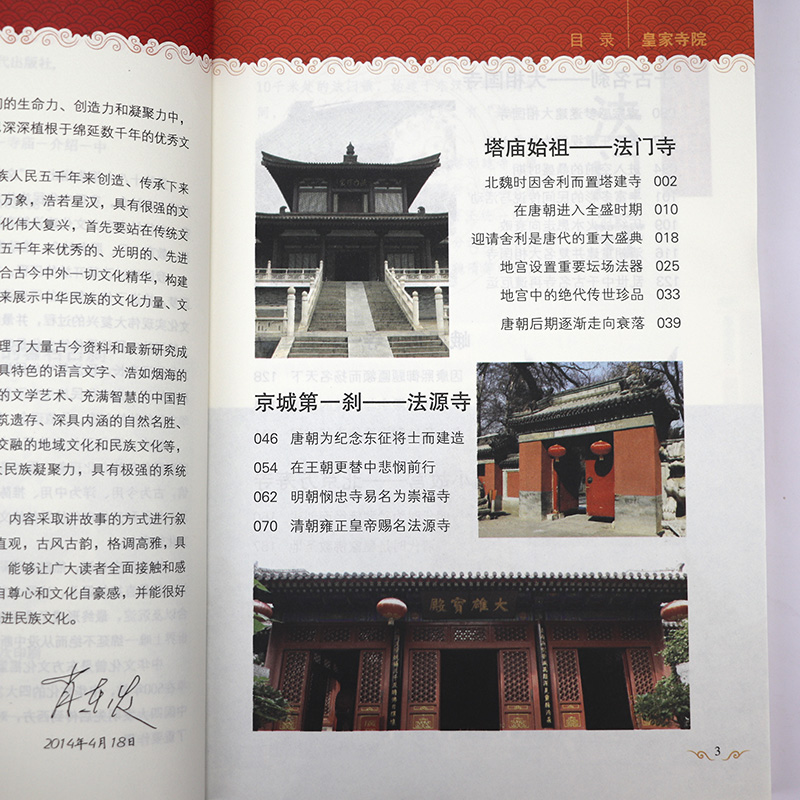 代出版社。
的生命力、创造力和凝聚力中，
深深植根于绵延数千年的优秀文
族人民五千年来创造、传承下来
万象，浩若星汉，具有很强的文
化伟大复兴，首先要站在传统文
五千年来优秀的、光明的、先进
合古今中外一切文化精华，构建
来展示中华民族的文化力量、文
理了大量古今资料和最新研究成
具特色的语言文字、浩如烟海的
的文学艺术、充满智慧的中国哲
筑遗存、深具内涵的自然名胜、
交融的地域文化和民族文化等，
民族凝聚力，具有极强的系统
内容采取讲故事的方式进行叙
直观，古风古韵，格调高雅，具
能够让广大读者全面接触和感
自尊心和文化自豪感，并能很好
进民族文化。
2014年4月18日
目 录 | 皇家寺院
塔庙始祖——法门寺
北魏时因舍利而置塔建寺 002
在唐朝进入全盛时期 010
迎请舍利是唐代的重大盛典 018
地宫设置重要坛场法器 025
地宫中的绝代传世珍品 033
唐朝后期逐渐走向衰落 039
京城第一刹——法源寺
046 唐朝为纪念东征将士而建造
054 在王朝更替中悲悯前行
062 明朝悯忠寺易名为崇福寺
070 清朝雍正皇帝赐名法源寺
殿寶雄大
3